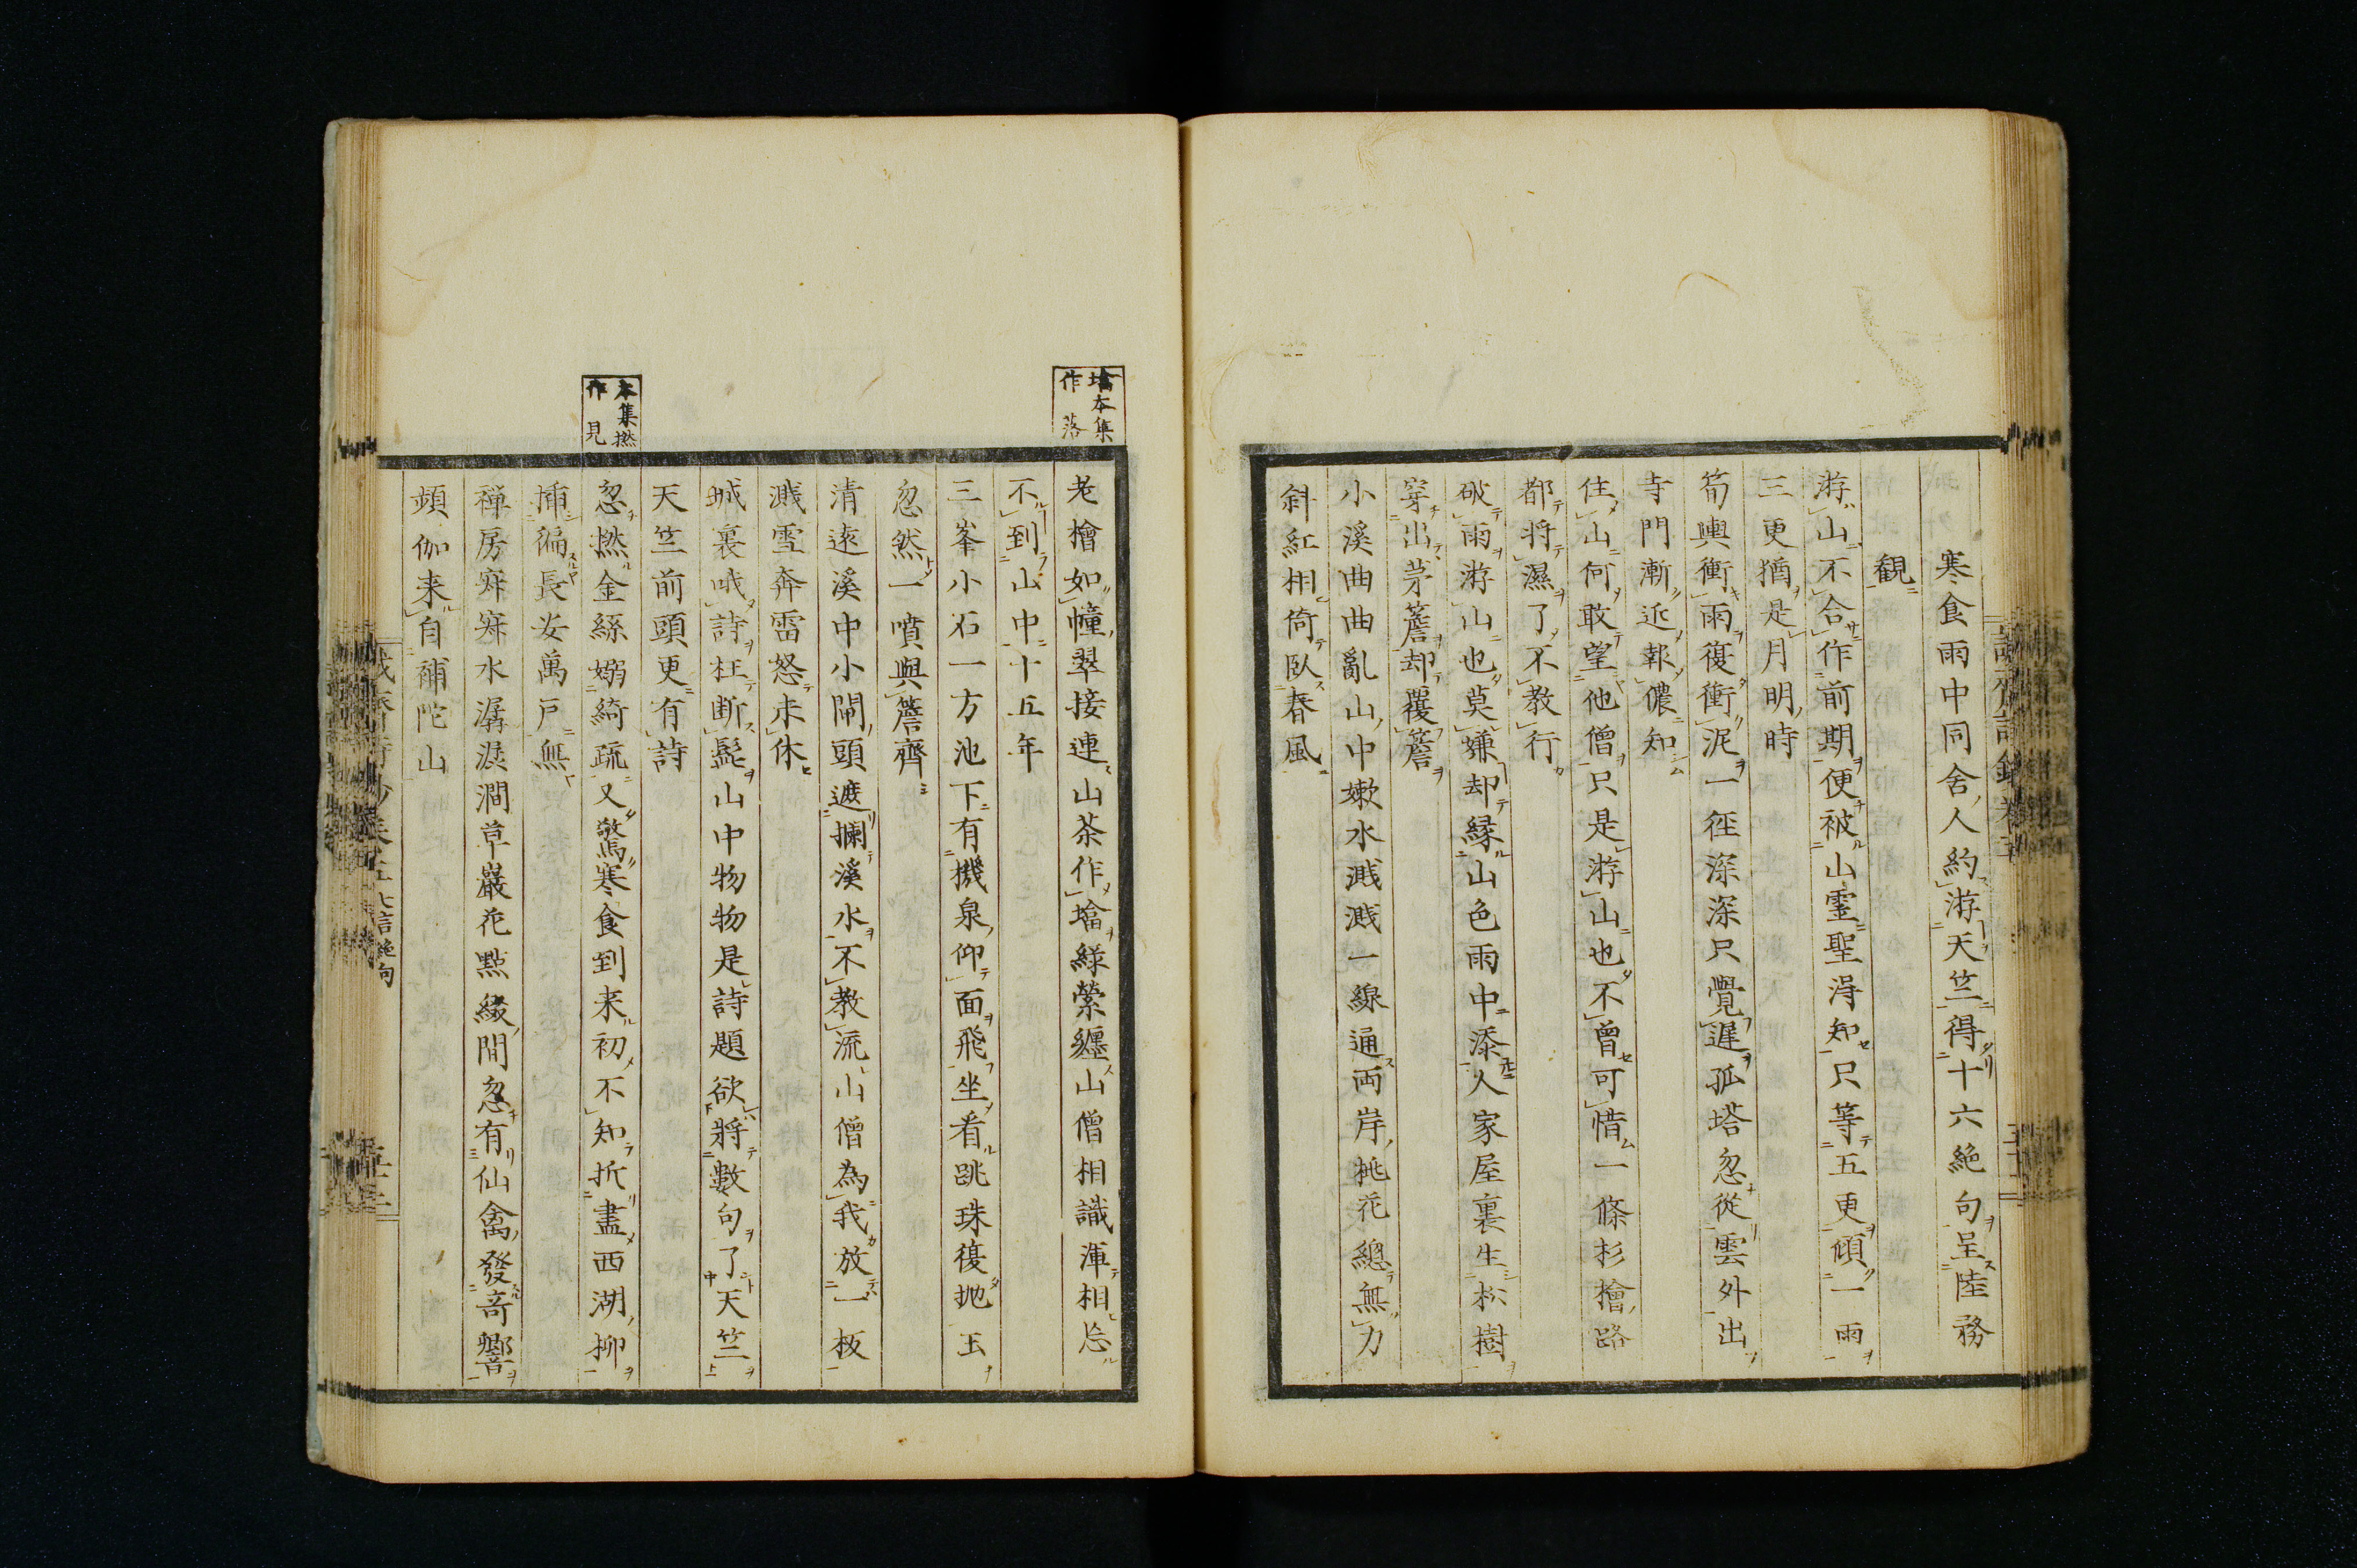 寒食雨中同舍人約游天竺得十六絶句呈陸務
觀
游山不合作前期便被山霊聖得知只等五更傾一雨
三更猶是月明時
筍輿衝雨復衝泥一徑深深只覺遲孤塔忽從雲外出
寺門漸近報儂知
住山何敢望他僧只是游山也不曾可惜一條杉檜路
都将濕了不教行
破雨游山也莫嫌却縁山色雨中添人家屋裏生松樹
穿出茅簷却覆簷
小溪曲曲亂山中嫩水濺濺一線通両岸桃花總無力
斜紅相倚臥春風
墖本集
作落
老檜如幢翠接連山茶作墖緑縈纏山僧相識渾相忘
不到山中十五年
三峯小石一方池下有機泉仰面飛坐看跳珠復拋玉
忽然一噴與簷齊
清遠溪中小閘頭遮攔溪水不教流山僧為我放一板
濺雪奔雷怒未休
城裏哦詩枉断髭山中物物是詩題欲將數句了天竺
天竺前頭更有詩
本集撚
作見
忽撚金絲嫋綺疏又驚寒食到来初不知折盡西湖柳
揷徧長安萬戸無
禅房寂寂水潺湲澗草巖花點綴間忽有仙禽發竒響
頻伽来自補陀山